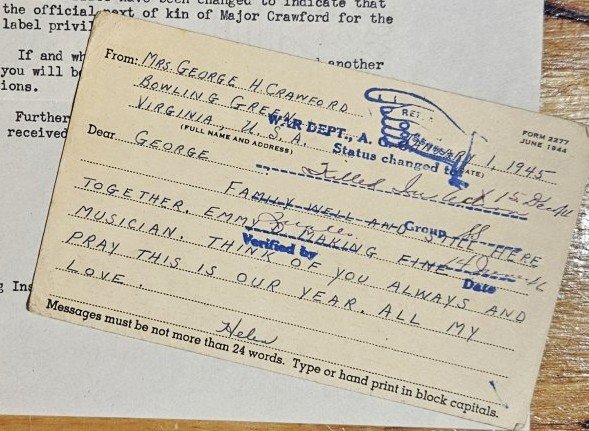 have been changed to indicate that
the official next of kin of Major Crawford for the
label privil
If and wh
another
you will b
ions.
Further
received
g Ins
From: MRS. GEORGE H. CRAWFORD
BOWLING GREEN
VIRGINIA, U.S.A.
(FULL NAME AND ADDRESS)
RET
WAR DEPT., A. G. O.
Status changed to
FORM 2277
JUNE 1944
JANUARY 1, 1945
(DATE)
Dear GEORGE
Killed
FAMILY WELL AND STILL HERE
Group
TOGETHER. EMMY IS MAKING FINE
Verified by
Date
MUSICIAN. THINK OF YOU ALWAYS AND
PRAY THIS IS OUR YEAR. ALL MY
LOVE.
Helen
Messages must be not more than 24 words. Type or hand print in block capitals.